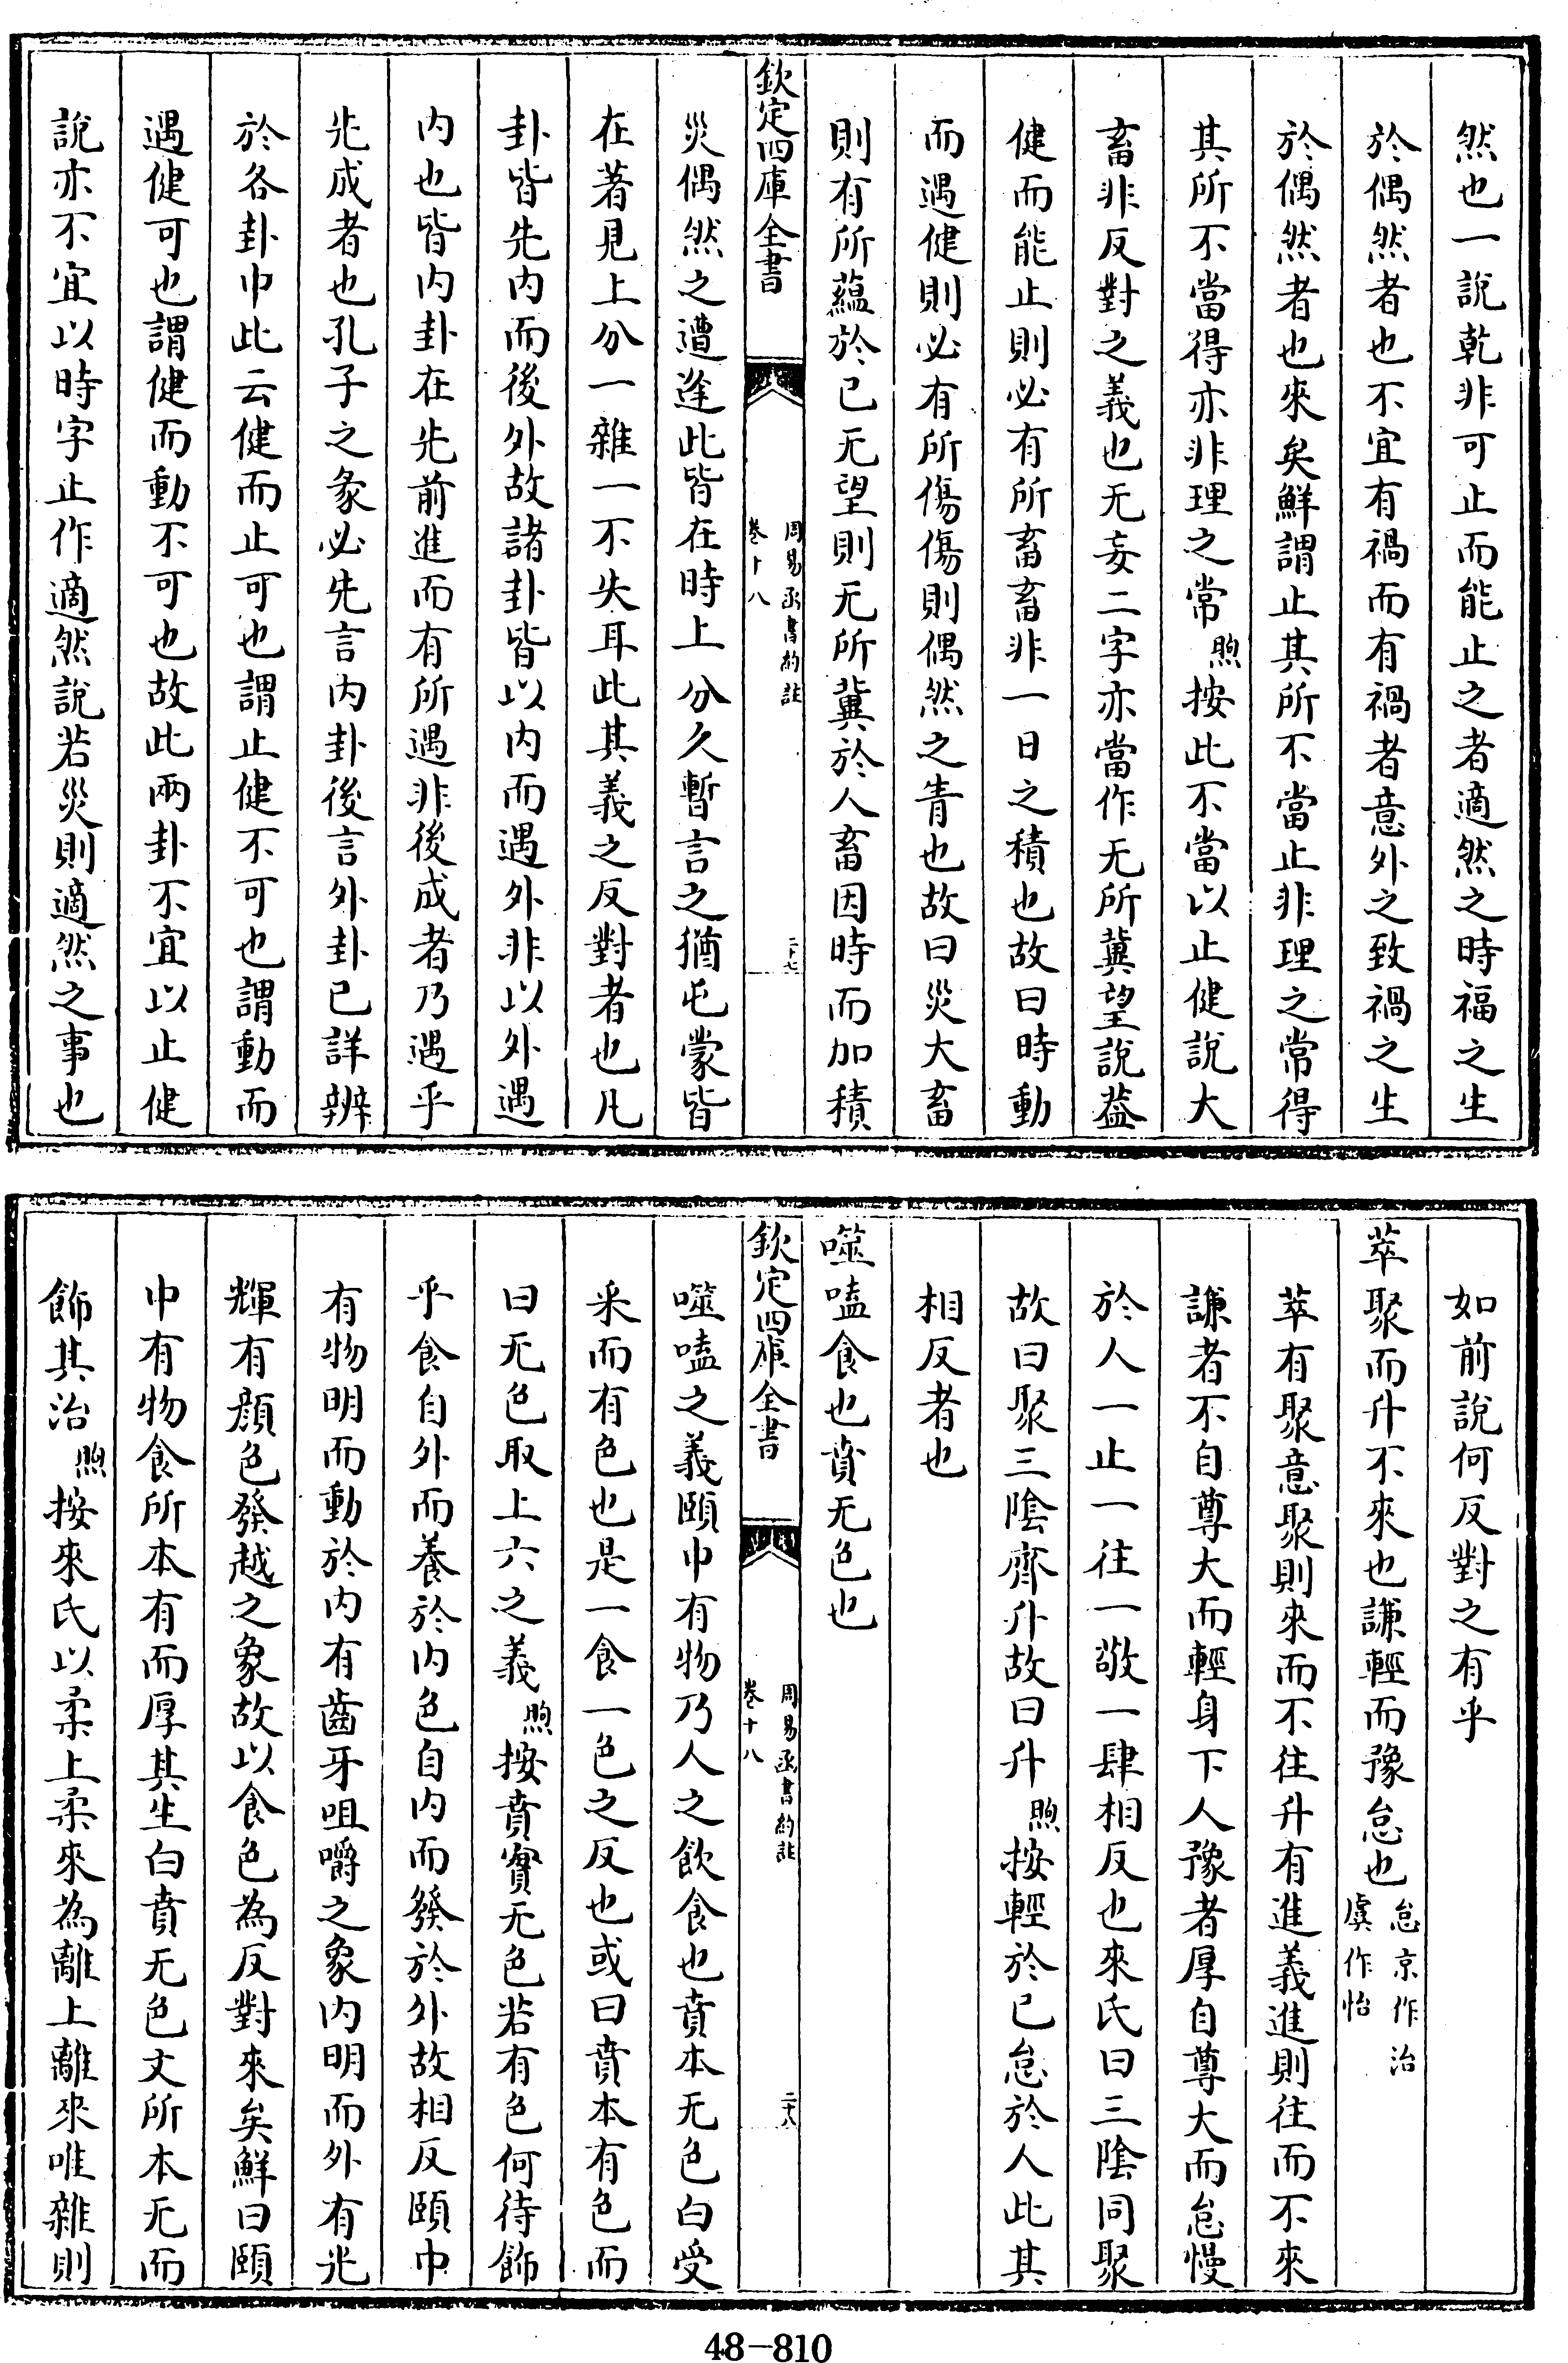 然也一說乾非可止而能止之者適然之時福之生
於偶然者也不宜有禍而有禍者意外之致禍之生
於偶然者也來矣鮮謂止其所不當止非理之常得
其所不當得亦非理之常煦按此不當以止健說大
畜非反對之義也无妄二字亦當作无所冀望說葢
健而能止則必有所畜畜非一日之積也故曰時動
而遇健則必有所傷傷則偶然之眚也故曰災大畜
則有所蘊於己无望則无所冀於人畜因時而加積
欽定四庫全書
周易函書約註
卷十八
二十七
災偶然之遭逢此皆在時上分久暫言之猶屯蒙皆
在著見上分一雜一不失耳此其義之反對者也凡
卦皆先内而後外故諸卦皆以内而遇外非以外遇
内也皆内卦在先前進而有所遇非後成者乃遇乎
先成者也孔子之彖必先言内卦後言外卦已詳辨
於各卦中此云健而止可也謂止健不可也謂動而
遇健可也謂健而動不可也故此兩卦不宜以止健
說亦不宜以時字止作適然說若災則適然之事也
如前說何反對之有乎
萃聚而升不來也謙輕而豫怠也怠京作治
虞作怡
萃有聚意聚則來而不往升有進義進則往而不來
謙者不自尊大而輕身下人豫者厚自尊大而怠慢
於人一止一往一敬一肆相反也來氏曰三陰同聚
故曰聚三陰齊升故曰升煦按輕於己怠於人此其
相反者也
噬嗑食也賁无色也
欽定四庫全書
周易函書約註
卷十八
二十八
噬嗑之義頤中有物乃人之飲食也賁本无色白受
采而有色也是一食一色之反也或曰賁本有色而
曰无色取上六之義煦按賁實无色若有色何待飾
乎食自外而養於内色自内而發於外故相反頤中
有物明而動於内有齒牙咀嚼之象内明而外有光
輝有顔色發越之象故以食色為反對來矣鮮曰頤
中有物食所本有而厚其生白賁无色文所本无而
飾其治煦按來氏以柔上柔來為離上離來唯雜則
48-810